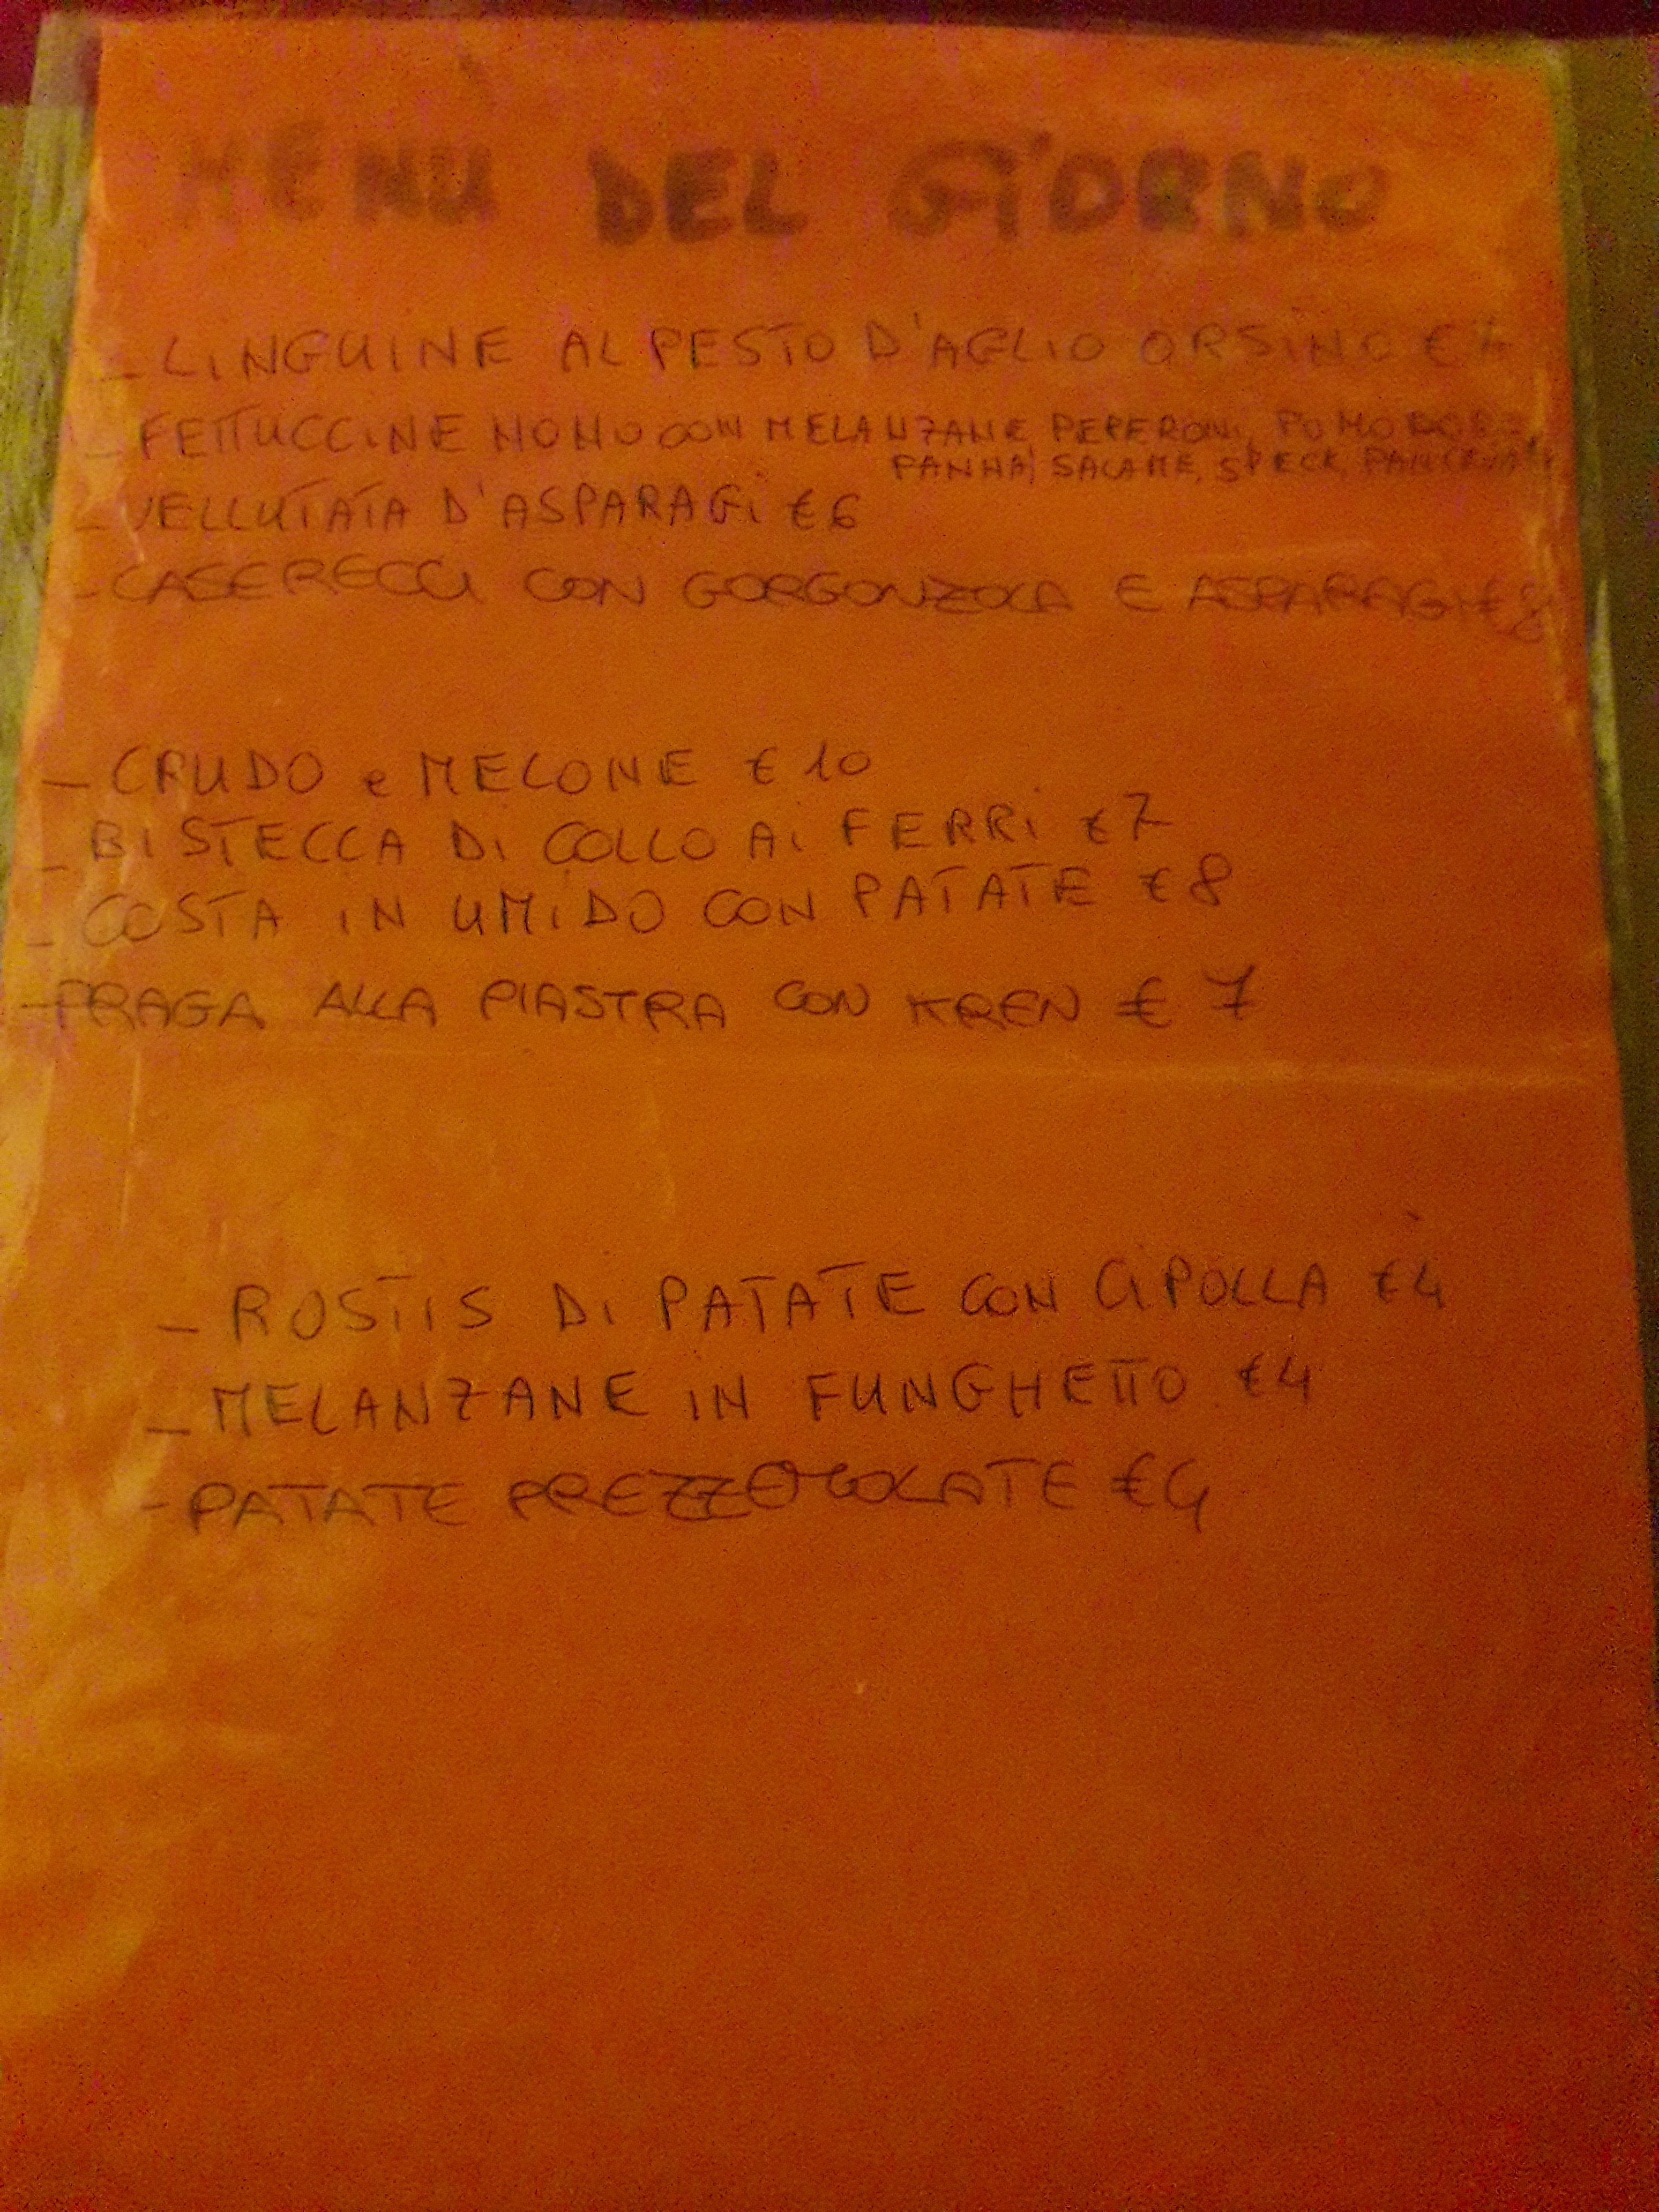 MENÙ DEL GIORNO
- LINGUINE AL PESTO D'AGLIO ORSINO €
- FETTUCCINE MOMO CON MELANZANE PEPERONI, POMODORO
PANNA, SALAME, SPECK, PANCETTA
- VELLUTATA D'ASPARAGI € 6
- CASERECCI CON GORGONZOLA E ASPARAGI € 8
- CRUDO e MELONE € 10
- BISTECCA DI COLLO AI FERRI € 7
- COSTA IN UMIDO CON PATATE € 8
- PRAGA ALLA PIASTRA CON KREN € 7
- ROSTIS DI PATATE CON CIPOLLA € 4
- MELANZANE IN FUNGHETTO € 4
- PATATE PREZZEMOLATE € 4